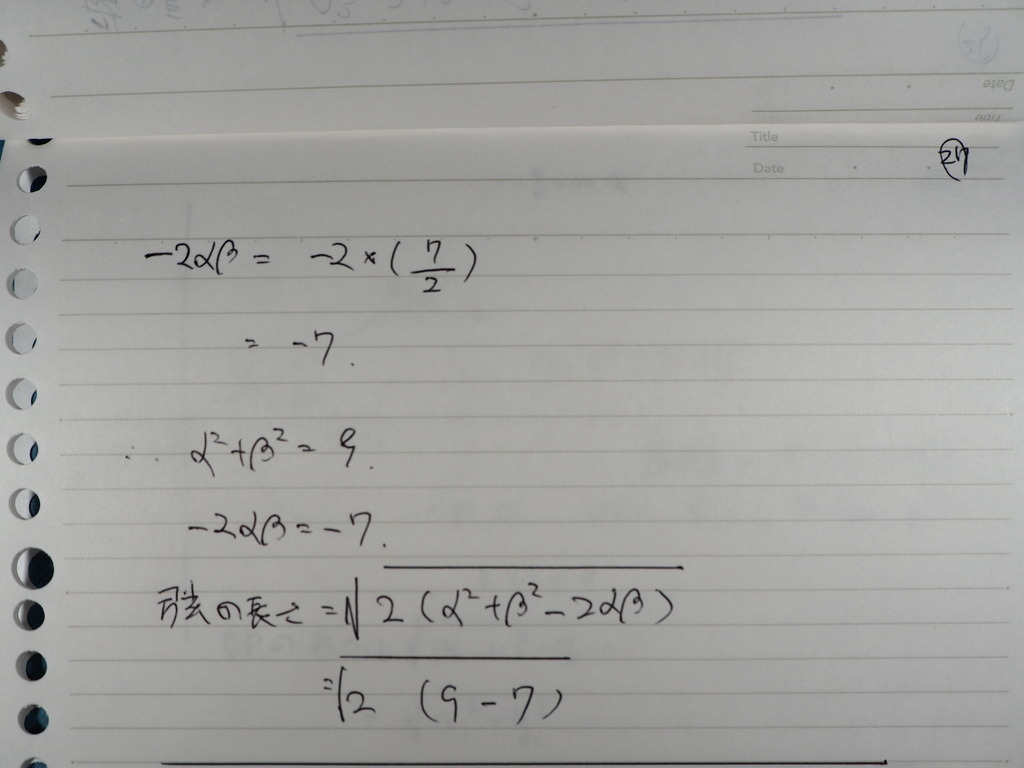 Title
Date
24
-2αβ = -2×(7/2)
= -7.
∴ α²+β² = 9.
-2αβ = -7.
弦の長さ = √2(α²+β²-2αβ)
= √2 (9-7)